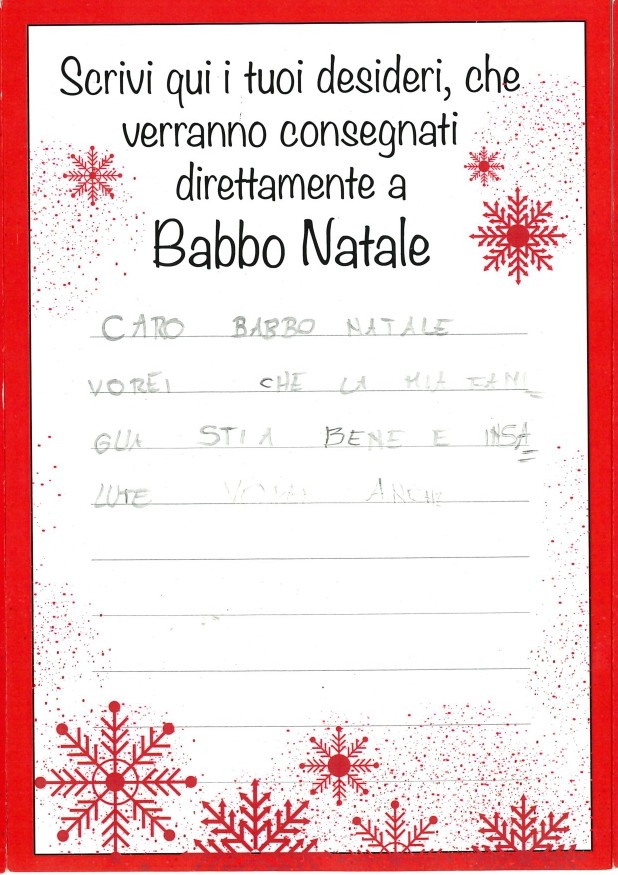 Scrivi qui i tuoi desideri, che
verranno consegnati
direttamente a
Babbo Natale
CARO BABBO NATALE
VOREI CHE LA MIA FAMI_
GLIA STIA BENE E INSA=
LUTE ANCHE